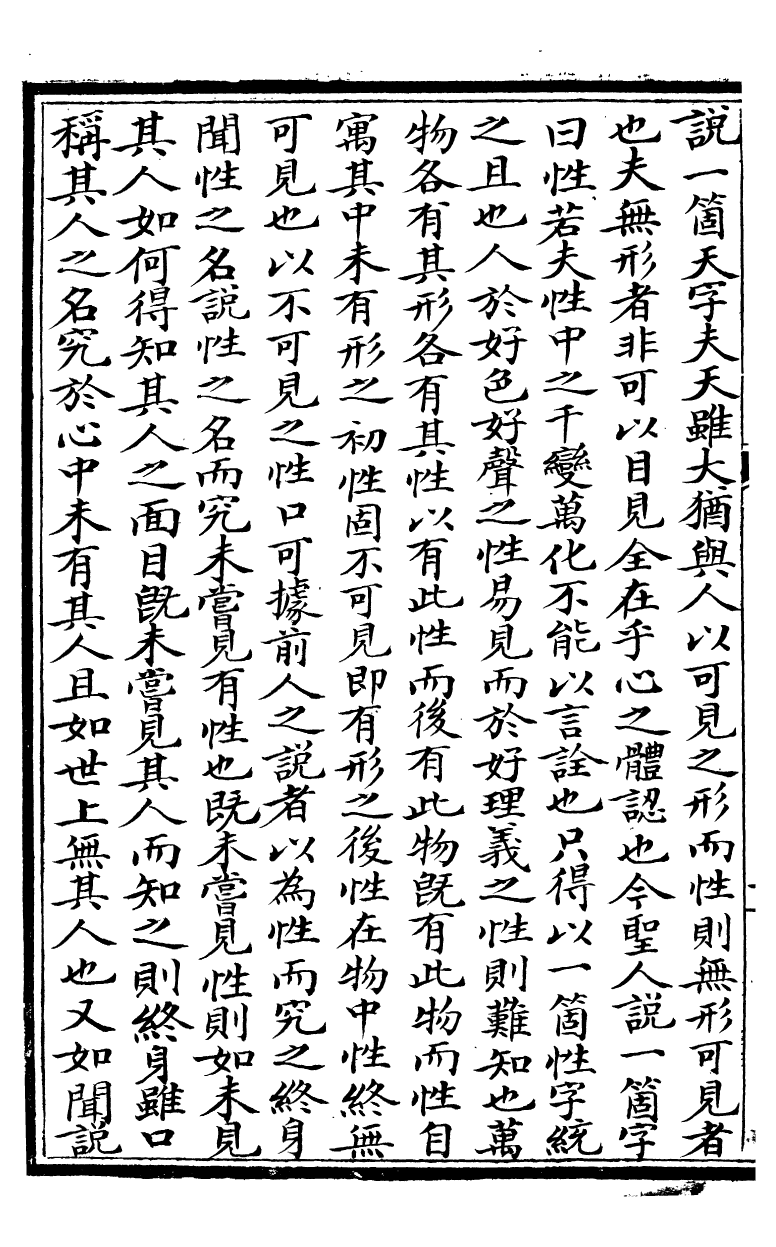 說一箇天字夫天雖大猶與人以可見之形而性則無形可見者
也夫無形者非可以目見全在乎心之體認也今聖人說一箇字
曰性若夫性中之千變萬化不能以言詮也只得以一箇性字統
之且也人於好色好聲之性易見而於好理義之性則難知也萬
物各有其形各有其性以有此性而後有此物旣有此物而性自
寓其中未有形之初性固不可見即有形之後性在物中性終無
可見也以不可見之性口可據前人之說者以為性而究之終身
聞性之名說性之名而究未嘗見有性也旣未嘗見性則如未見
其人如何得知其人之面目旣未嘗見其人而知之則終身雖口
稱其人之名究於心中未有其人且如世上無其人也又如聞說